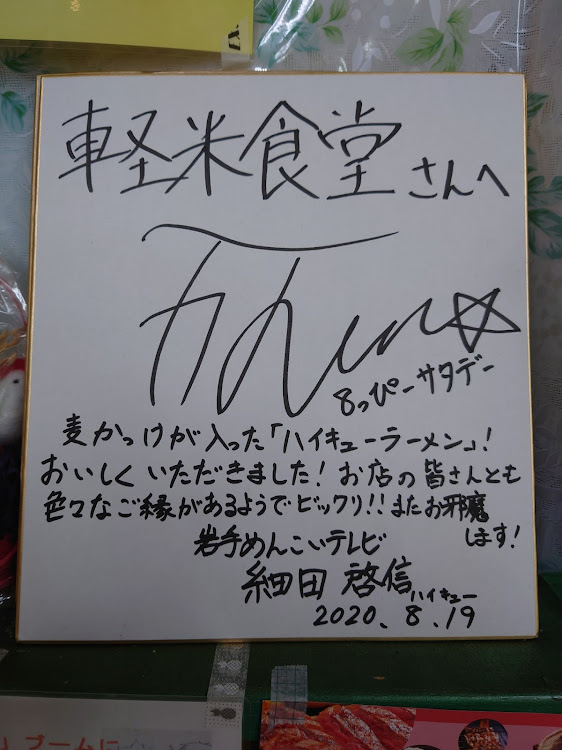 軽米食堂さんへ
8っぴーサタデー
麦かっけが入った「ハイキューラーメン」!
おいしくいただきました!お店の皆さんとも
色々なご縁があるようでビックリ!!またお邪魔
します!
岩手めんこいテレビ
細田 啓信
ハイキュー
2020.8.19
ブームに